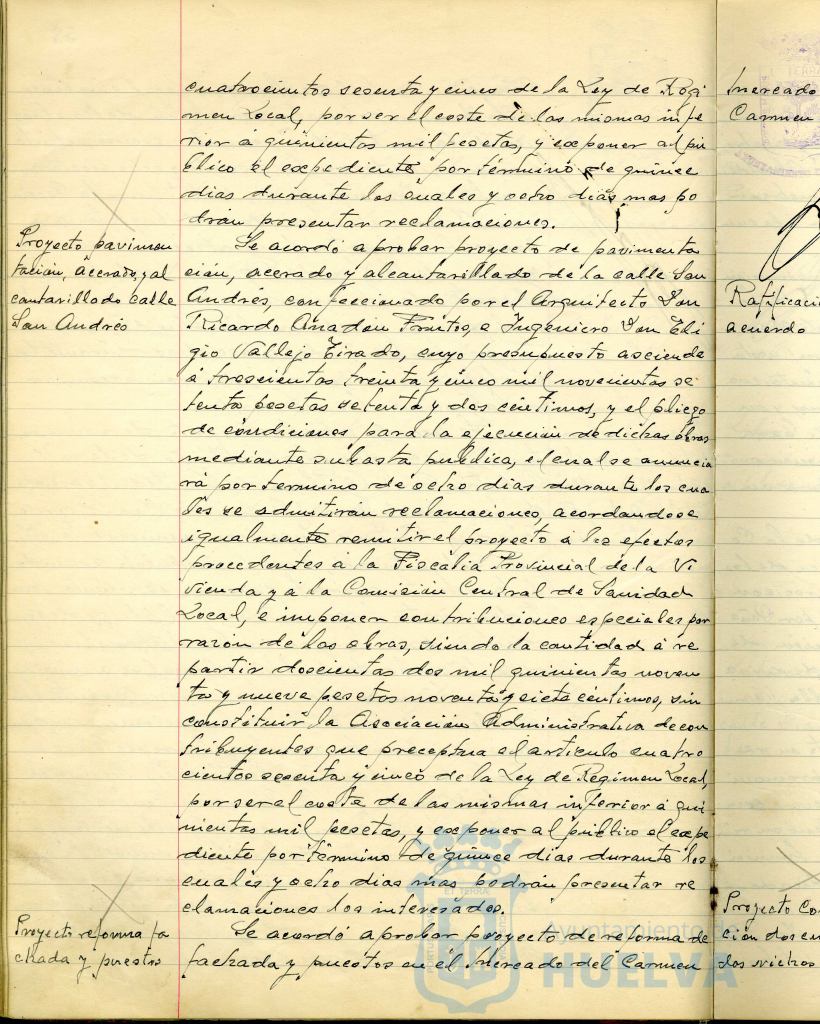 cuatrocientos sesenta y cinco de la Ley de Régi
men Local, por ser el coste de las mismas infe
rior á quinientas mil pesetas, y exponer al pú
blico el expediente por término de quince
dias durante los cuales y ocho dias mas po
drán presentar reclamaciones.
Proyecto pavimen
tación, acerado, y al
cantarillado calle
San Andrés
Se acordó aprobar proyecto de pavimenta
ción, acerado y alcantarillado de la calle San
Andrés, confeccionado por el Arquitecto Don
Ricardo Anadón Frutos, e Ingeniero Don Eli
gio Vallejo Tirado, cuyo presupuesto asciende
á trescientas treinta y cinco mil novecientas se
tenta pesetas setenta y dos céntimos, y el pliego
de condiciones para la ejecución de dichas obras
mediante subasta publica, el cual se anuncia
rá por termino de ocho dias durante los cua
les se admitirán reclamaciones, acordandose
igualmente remitir el proyecto á los efectos
procedentes á la Fiscalia Provincial de la Vi
vienda y á la Comisión Central de Sanidad
Local, e imponer contribuciones especiales por
razón de las obras, siendo la cantidad á re
partir doscientas dos mil quinientas noven
ta y nueve pesetas noventa y siete céntimos, sin
constituir la Asociación Administrativa de con
tribuyentes que preceptua el articulo cuatro
cientos sesenta y cinco de la Ley de Regimen Local,
por ser el coste de las mismas inferior á qui
nientas mil pesetas, y exponer al público el expe
diente por término de quince dias durante los
cuales y ocho dias mas podrán presentar re
clamaciones los interesados.
Proyecto reforma fa
chada y puestos
Se acordó aprobar proyecto de reforma de
fachada y puestos en el Mercado del Carmen
Mercado
Carmen
Ratificaci
acuerdo
Proyecto Con
ción dos en
dos nichos
Ayuntamiento
HUELVA